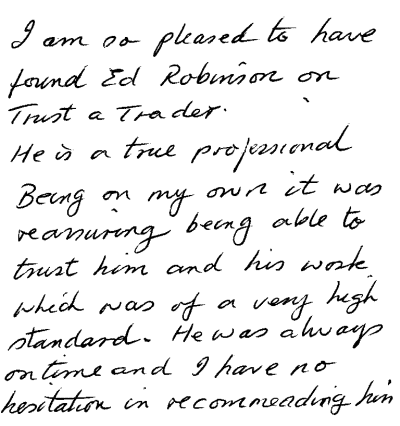 I am so pleased to have
found Ed Robinson on
Trust a Trader.
He is a true professional
Being on my own it was
reassuring being able to
trust him and his work
which was of a very high
standard. He was always
on time and I have no
hesitation in recommending him